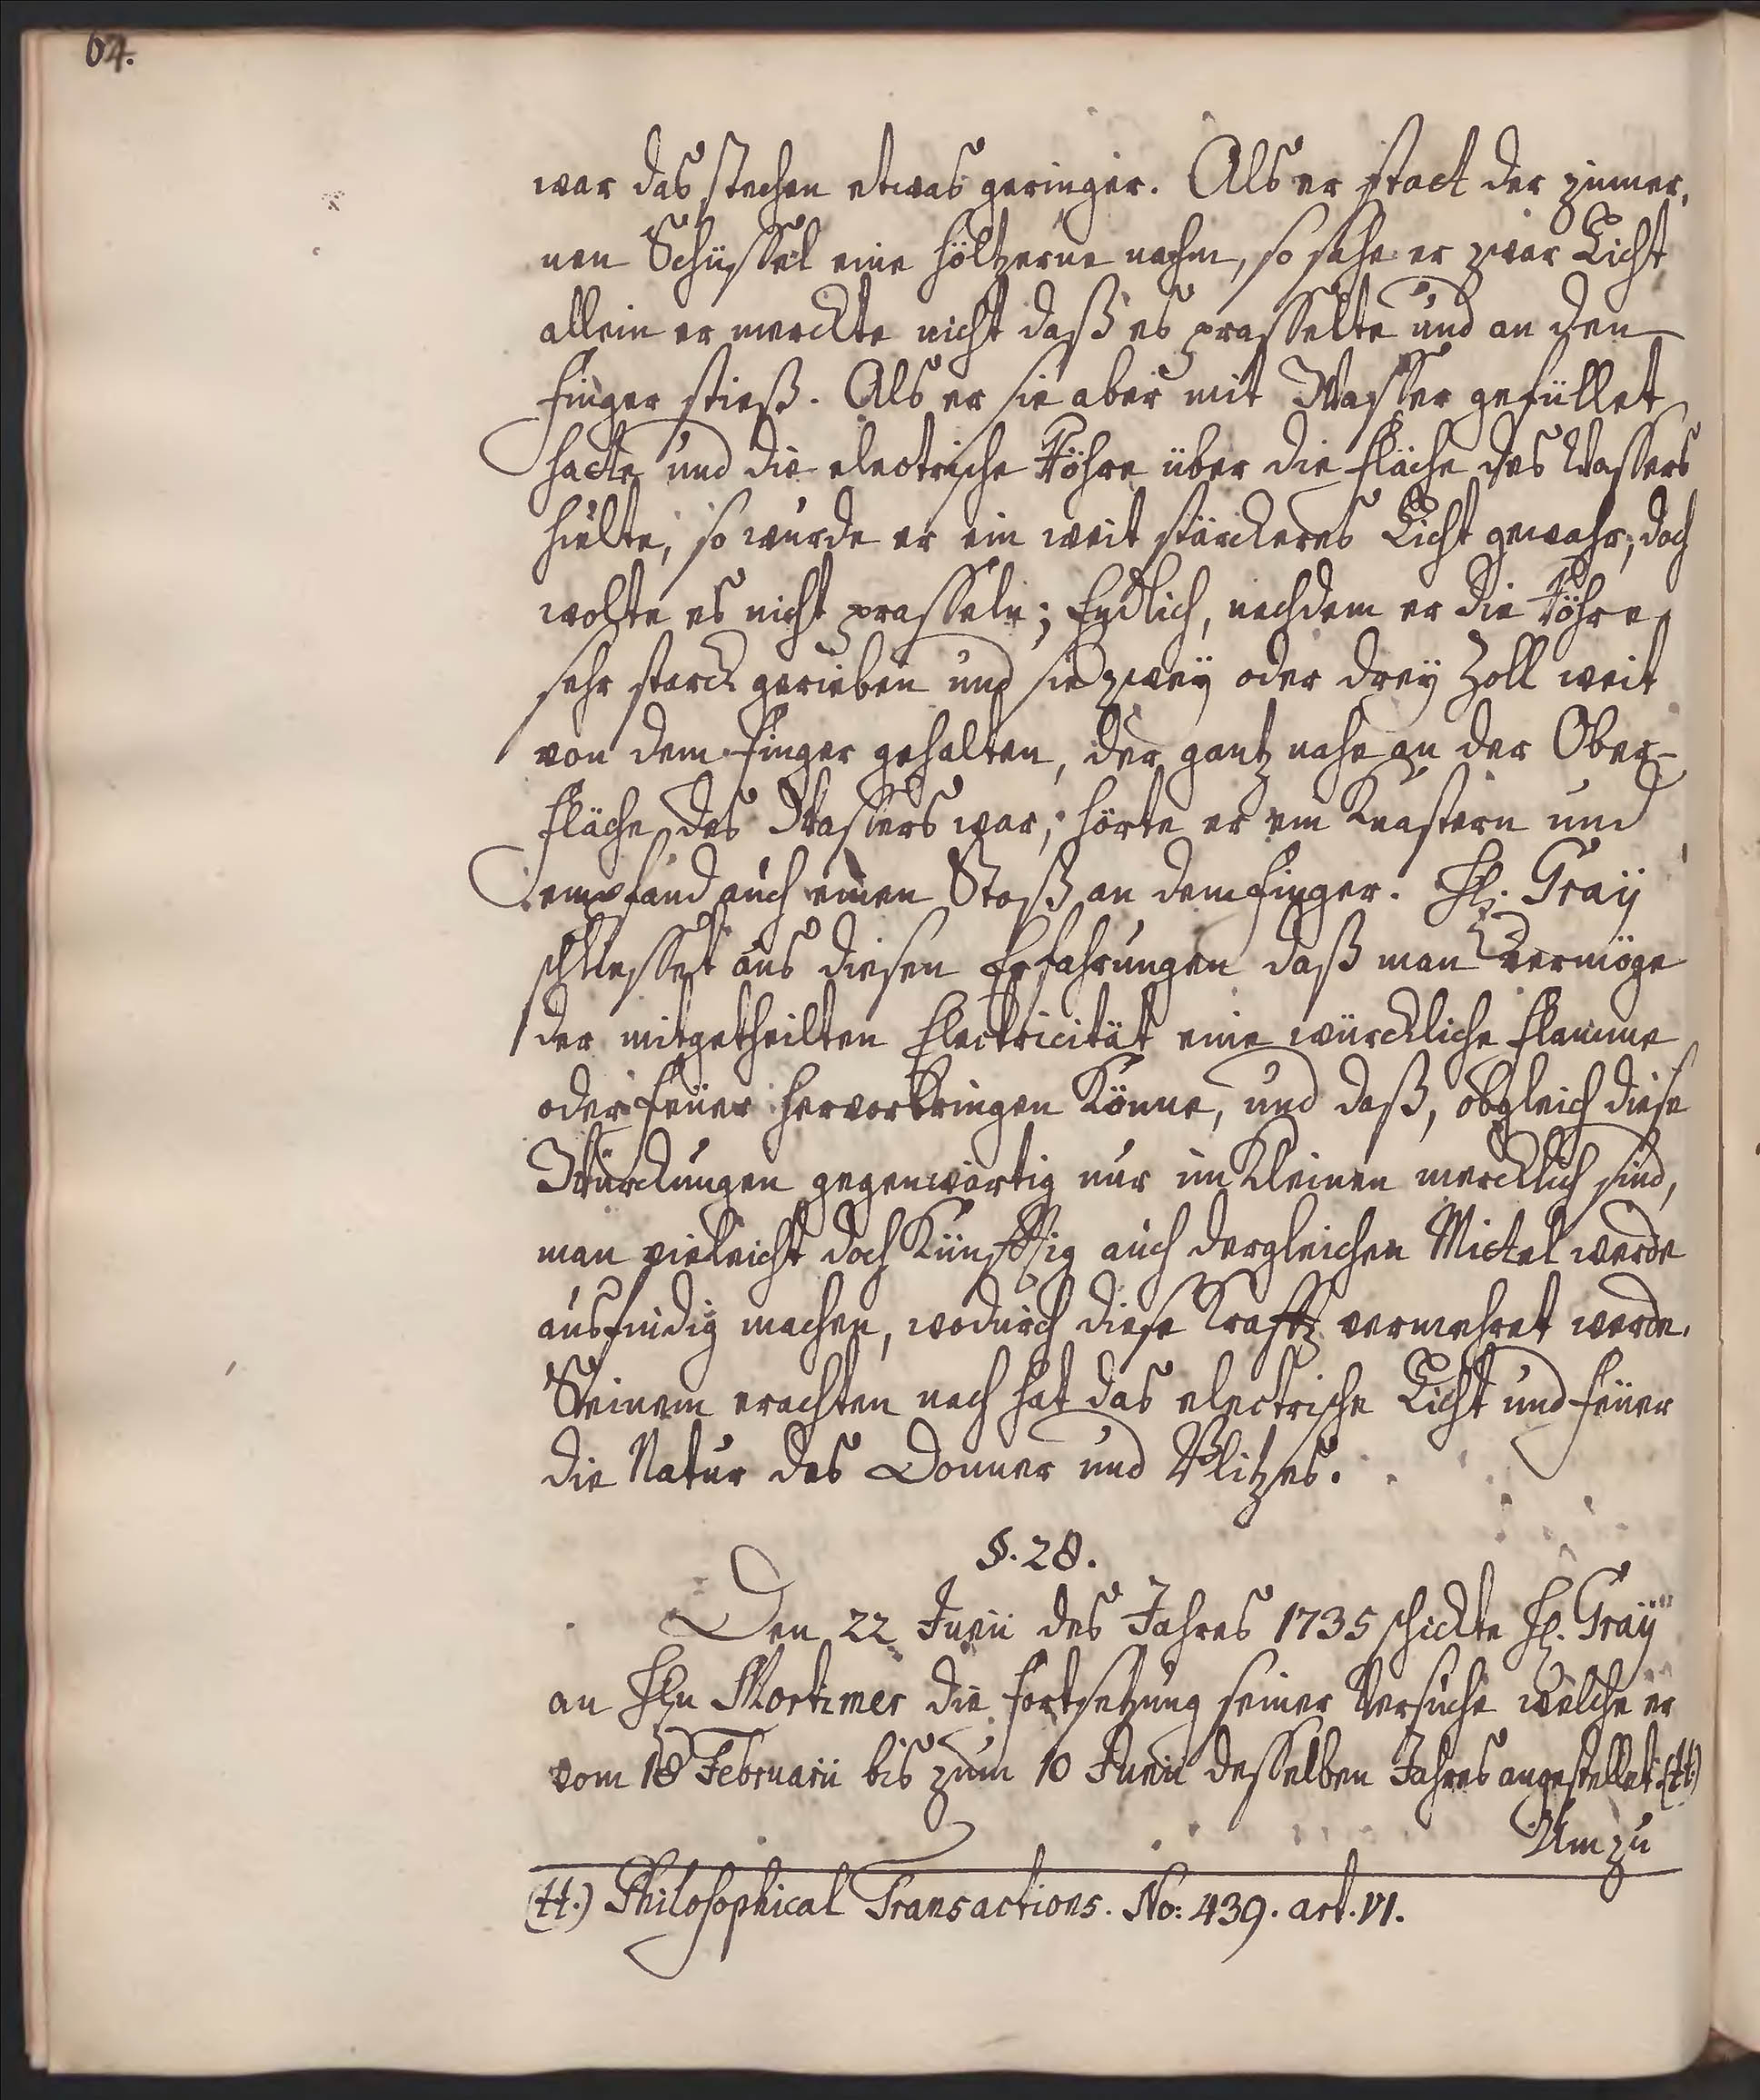 64.
war das stechen etwas geringer. Als er statt der zinner,
nen Schüssel eine höltzerne nahm, so sahe er zwar Licht
allein er merckte nicht daß es prasselte und an den
Finger stieß. Als er sie aber mit Wasser gefüllet
hatte und die electrische Röhre über die Fläche des Wassers
hielte, so wurde er ein weit stärckeres Licht gewahr, doch
wolte es nicht prasseln; Endlich, nachdem er die Röhre
sehr starck gerieben und sie zweÿ oder dreÿ Zoll weit
von dem Finger gehalten, der gantz nahe an der Ober-
Fläche des Wassers war, hörte er ein Knastern und
empfand auch einen Stoß an dem Finger. H. Graÿ
schliesset aus diesen Erfahrungen daß man vermöge
der mitgetheilten Electricität eine würckliche Flamme
oder Feuer hervorbringen Könne, und daß, obgleich diese
Würckungen gegenwärtig nur im Kleinen mercklich sind,
man vieleicht doch Künfftig auch dergleichen Mittel werde
ausfindig machen, wodurch diese Krafft vermehret werde.
Seinem erachten nach hat das electrische Licht und Feuer
die Natur des Donner und Blitzes.
§. 28.
Den 22 Junii des Jahres 1735 schickte H. Graÿ
an Hn Mortimer die Fortsetzung seiner Versuche welche er
vom 18 Februarii bis zum 10 Junii desselben Jahres angestellet. (tt)
Um zu
(tt.) Philosophical Transactions. No: 439. art. VI.